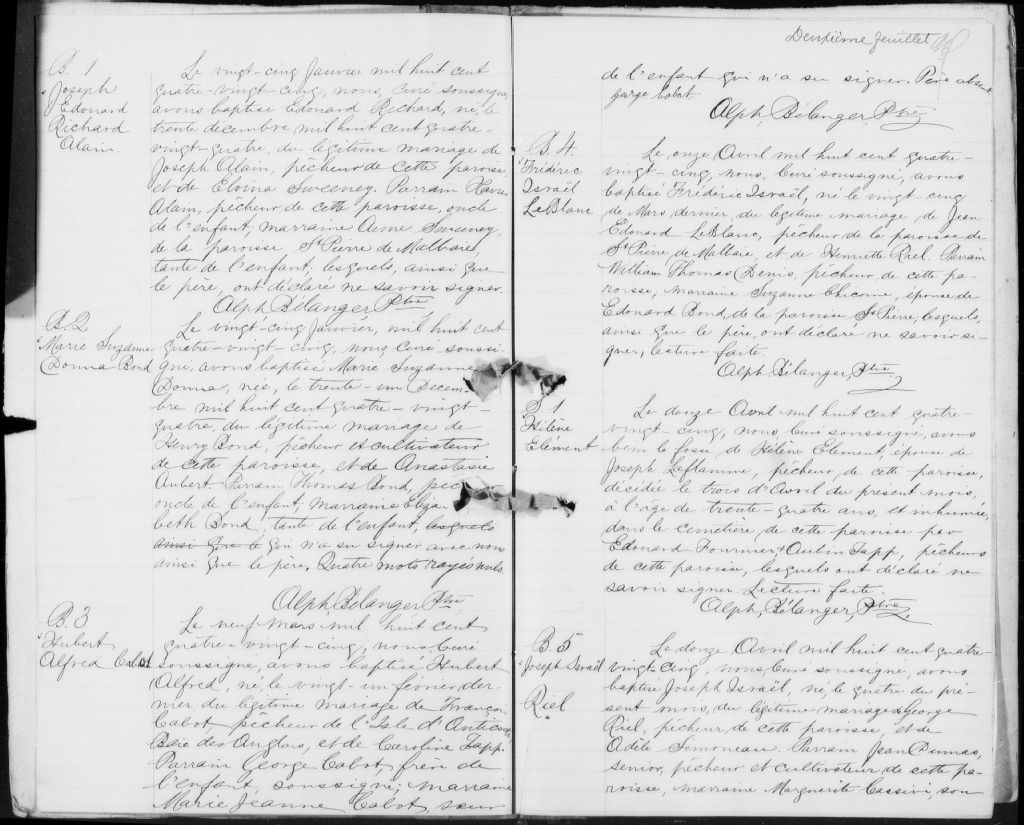 B. 1
Joseph
Edouard
Richard
Alain
Le vingt-cinq Janvier mil huit cent
quatre-vingt-cinq, nous, Curé soussigné,
avons baptisé Edouard Richard, né, le
trente décembre mil huit cent quatre-
vingt-quatre, du légitime mariage de
Joseph Alain, pêcheur de cette paroisse,
et de Elvina Sweeney. Parrain Xavier
Alain, pêcheur de cette paroisse, oncle
de l'enfant, marraine Anne Sweeney,
de la paroisse St Pierre de Malbaie,
tante de l'enfant; lesquels, ainsi que
le père, ont déclaré ne savoir signer.
Alph. Bélanger, Ptre
B. 2
Marie Suzanne
Donna Bond
Le vingt-cinq Janvier, mil huit cent
quatre-vingt-cinq, nous, curé soussi-
gné, avons baptisé Marie Suzanne
Donna, née, le trente-un Décem-
bre mil huit cent quatre-vingt-
quatre, du légitime mariage de
Henry Bond, pêcheur et cultivateur
de cette paroisse, et de Anastasie
Aubert. Parrain Thomas Bond, pêcheur
oncle de l'enfant; marraine Eliza-
beth Bond, tante de l'enfant, lesquels
ainsi que le qui n'a su signer avec nous
ainsi que le père. Quatre mots rayés nuls.
Alph. Bélanger, Ptre
B. 3
Hubert
Alfred Cabot
Le neuf Mars mil huit cent
quatre-vingt-cinq, nous, Curé
soussigné, avons baptisé Hubert
Alfred, né, le vingt-un février der-
nier du légitime mariage de François
Cabot, pêcheur de l'Isle d'Anticosti,
Baie des Anglais, et de Caroline Tapp.
Parrain George Cabot, frère de
l'enfant, soussigné; marraine
Marie Jeanne Cabot, sœur
Deuxième feuillet
de l'enfant qui n'a su signer. Père absent.
George Cabot.
Alph. Bélanger, Ptre
B 4.
Frédéric
Israël
LeBlanc
Le onze Avril mil huit cent quatre-
vingt-cinq, nous, Curé soussigné, avons
baptisé Frédéric Israël, né le vingt-cinq
de Mars dernier, du légitime mariage, de Jean
Edouard LeBlanc, pêcheur de la paroisse de
St Pierre de Malbaie, et de Henriette Riel. Parrain
William Thomas Denis, pêcheur de cette pa-
roisse, Marraine Suzanne Chicoine, épouse de
Edouard Bond, de la paroisse St Pierre; lesquels,
ainsi que le père, ont déclaré ne savoir si-
gner, lecture faite.
Alph. Bélanger, Ptre
S 1
Hélène
Element
Le douze Avril mil huit cent quatre-
vingt-cinq, nous, Curé soussigné, avons
béni la fosse de Hélène Element, épouse de
Joseph Laflamme, pêcheur, de cette paroisse,
décédée le trois d'Avril du présent mois,
à l'âge de trente-quatre ans, et inhumée,
dans le cimetière de cette paroisse par
Edouard Fournier & Aubin Tapp, pêcheurs
de cette paroisse, lesquels ont déclaré ne
savoir signer. Lecture faite.
Alph. Bélanger, Ptre
B. 5
Joseph Israël
Riel
Le douze Avril mil huit cent quatre-
vingt-cinq, nous, Curé soussigné, avons
baptisé Joseph Israël, né, le quatre du pré-
sent mois, du légitime mariage de George
Riel, pêcheur de cette paroisse, et de
Adèle Simoneau. Parrain Jean Dumas,
senior, pêcheur et cultivateur de cette pa-
roisse, marraine Marguerite Cassivi, son